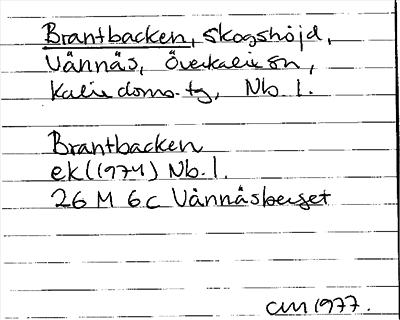 Brantbacken, skogshöjd,
Vännäs, Överkalix sn,
Kalix doms. tg, Nb. l.
Brantbacken
ek (1974) Nb. l.
26 M 6c Vännäsberget
1977.